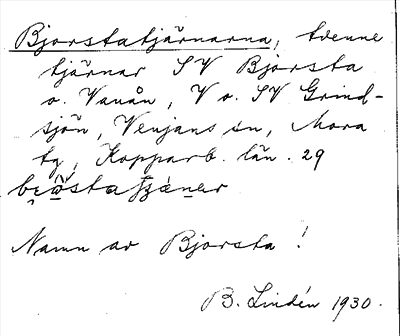 Bjorstatjärnarna, tvenne
tjärnar SV Bjorsta
o. Vanån, V o. SV Grind-
sjön, Venjans sn, Mora
tg, Kopparb. län. 29
Namn av Bjorsta!
B. Lindén 1930.